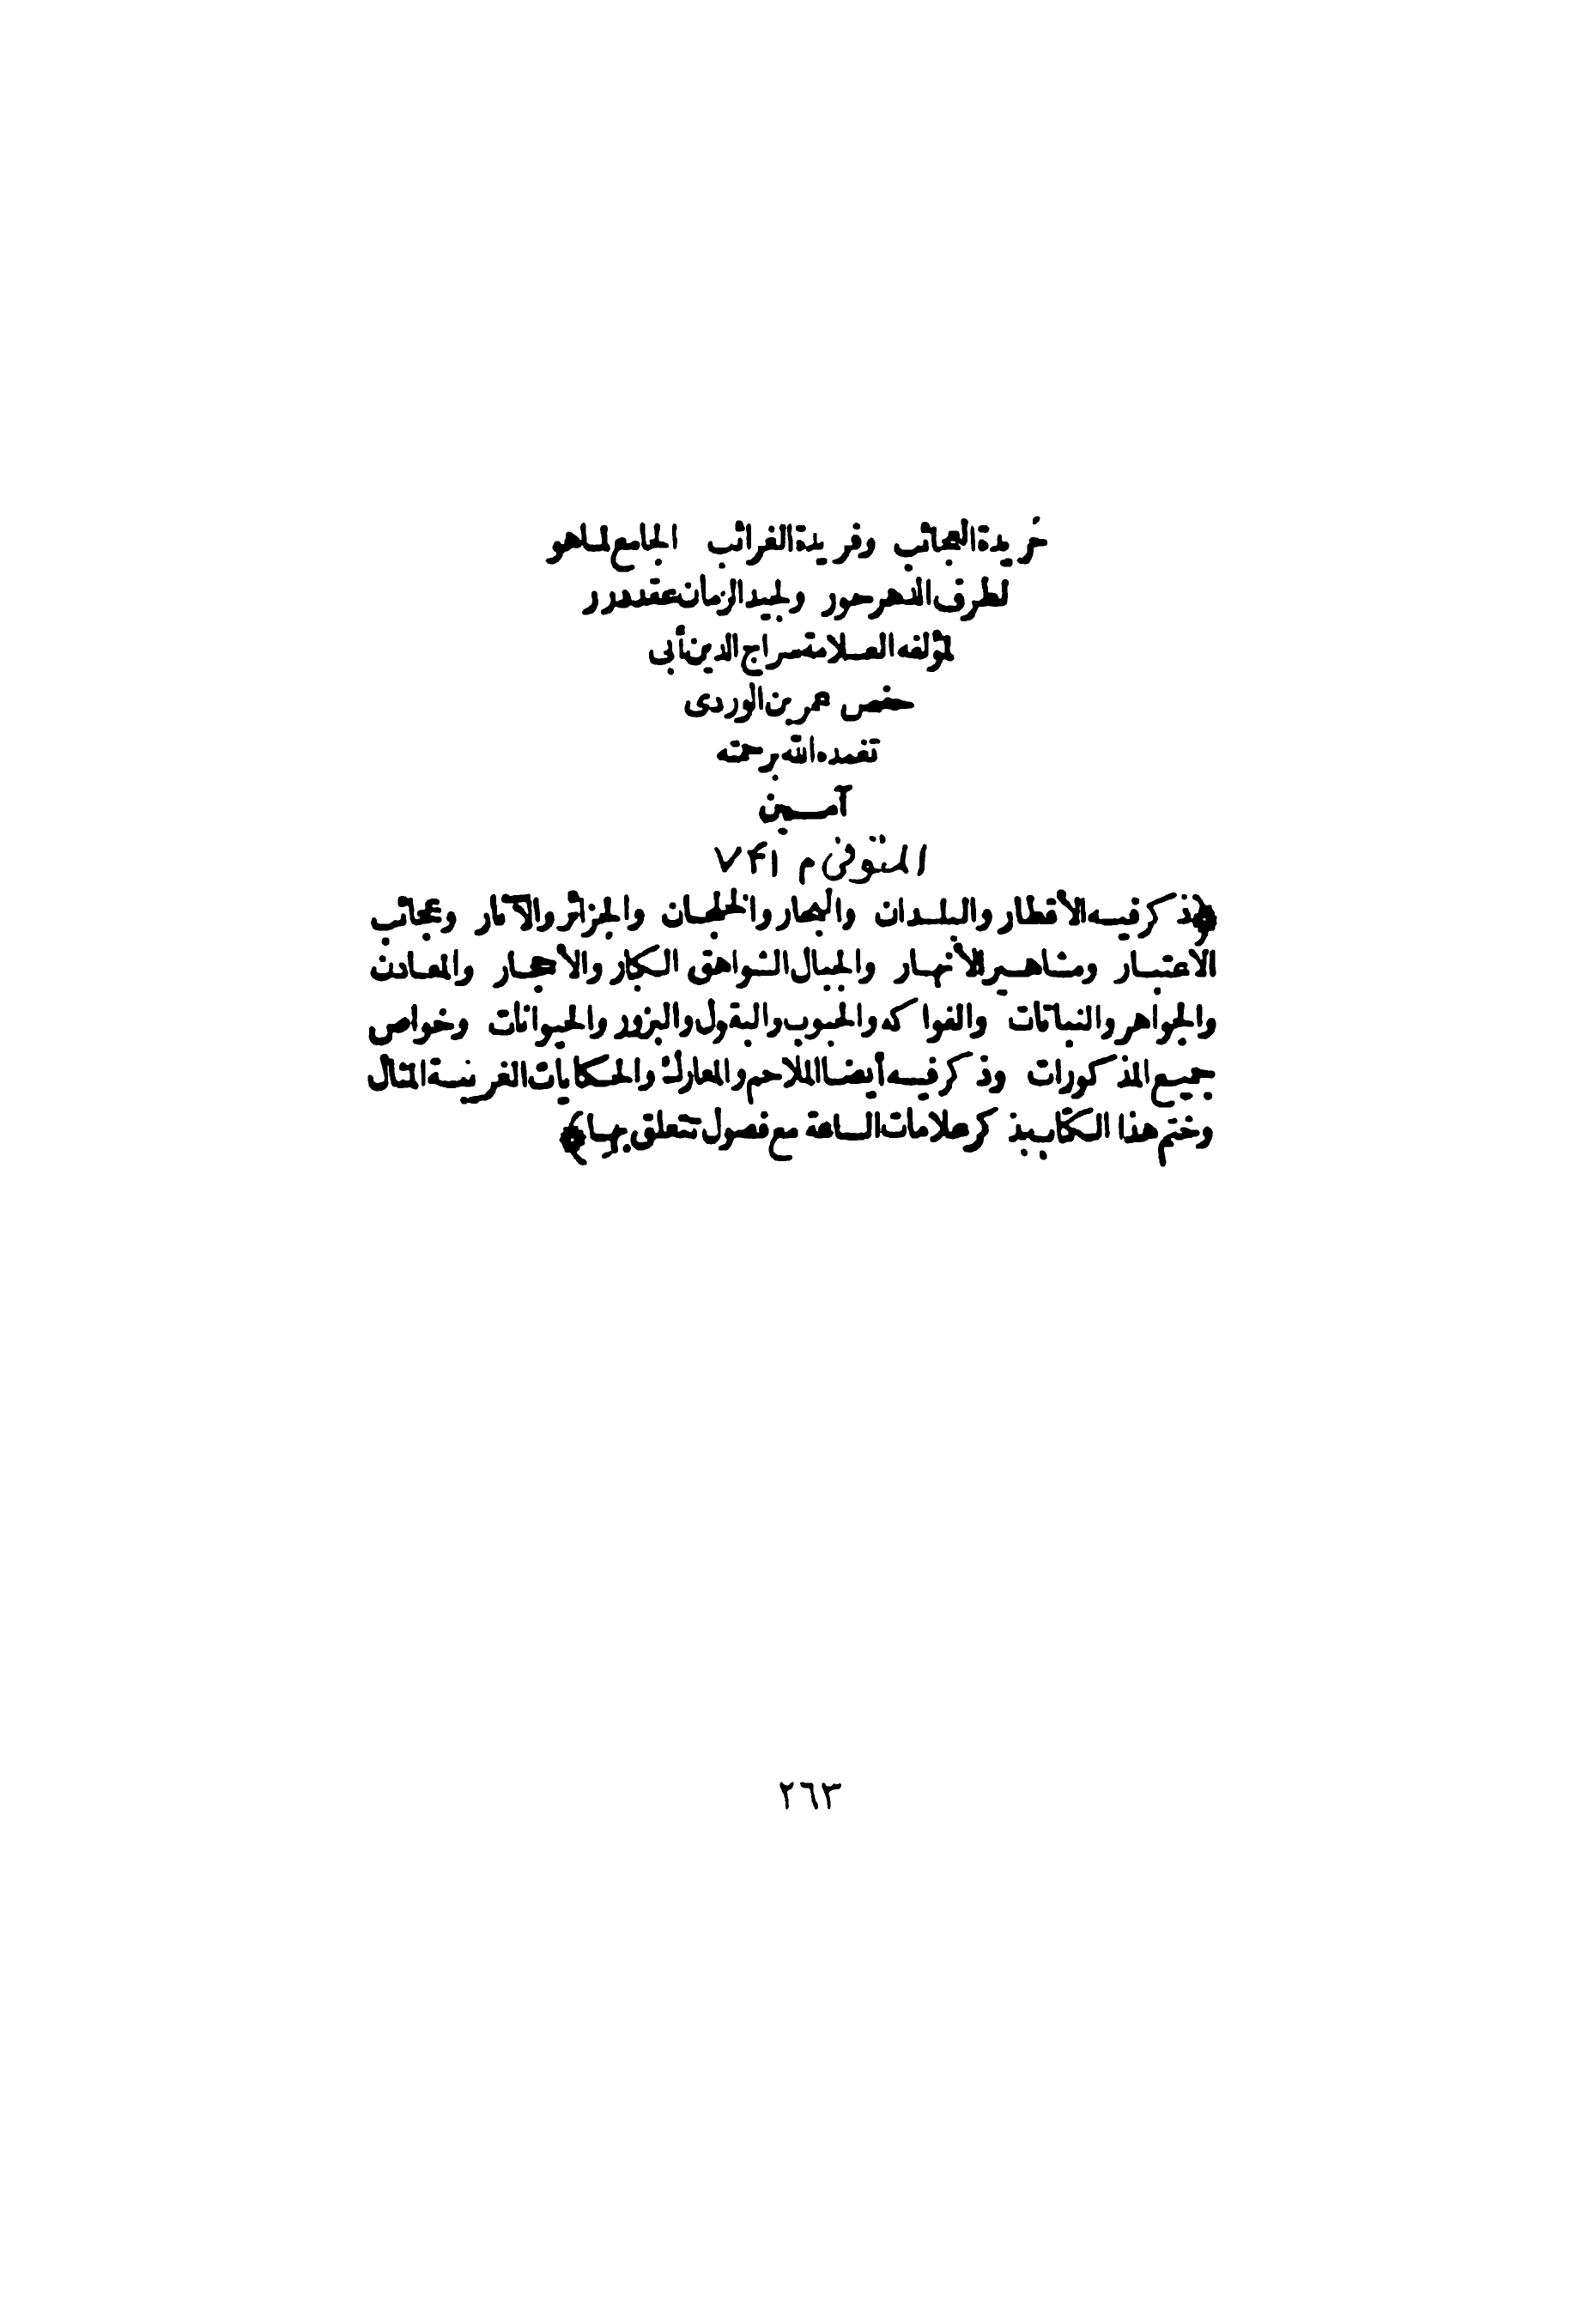 خريدة العجائب وفريدة الغرائب الجامع لما هو
لطرف الدهر حور ولجيد الزمان عقد درر
لمؤلفه العلامة سراج الدين أبي
حفص عمر بن الوردى
تغمده الله برحمته
آمين
المتوفى م ٧۴١
﴿ذكر فيه الأقطار والبلدان والبحار والخلجان والجزائر والآثار وعجائب
الاعتبار ومشاهير الأنهار والجبال الشواهق الكبار والأحجار والمعادن
والجواهر والنباتات والفواكه والحبوب والبقول والبزور والحيوانات وخواص
جميع المذكورات وذكر فيه أيضا الملاحم والمعارك والحكايات الغريبة المثال
وختم هذا الكتاب بذكر علامات الساعة مع فصول تتعلق بها﴾
٢٦٣